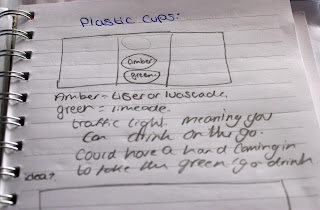 Plastic cups:
amber
green.
Amber = tiger or lucozade.
green = limeade.
traffic light meaning you
can drink on the go.
Could have a hand coming in
to take the green 'go' drink.
idea?